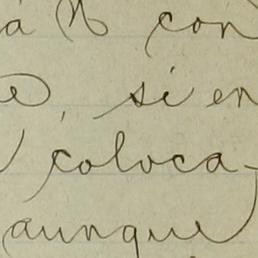 a N con
e, si en
coloca-
aunque